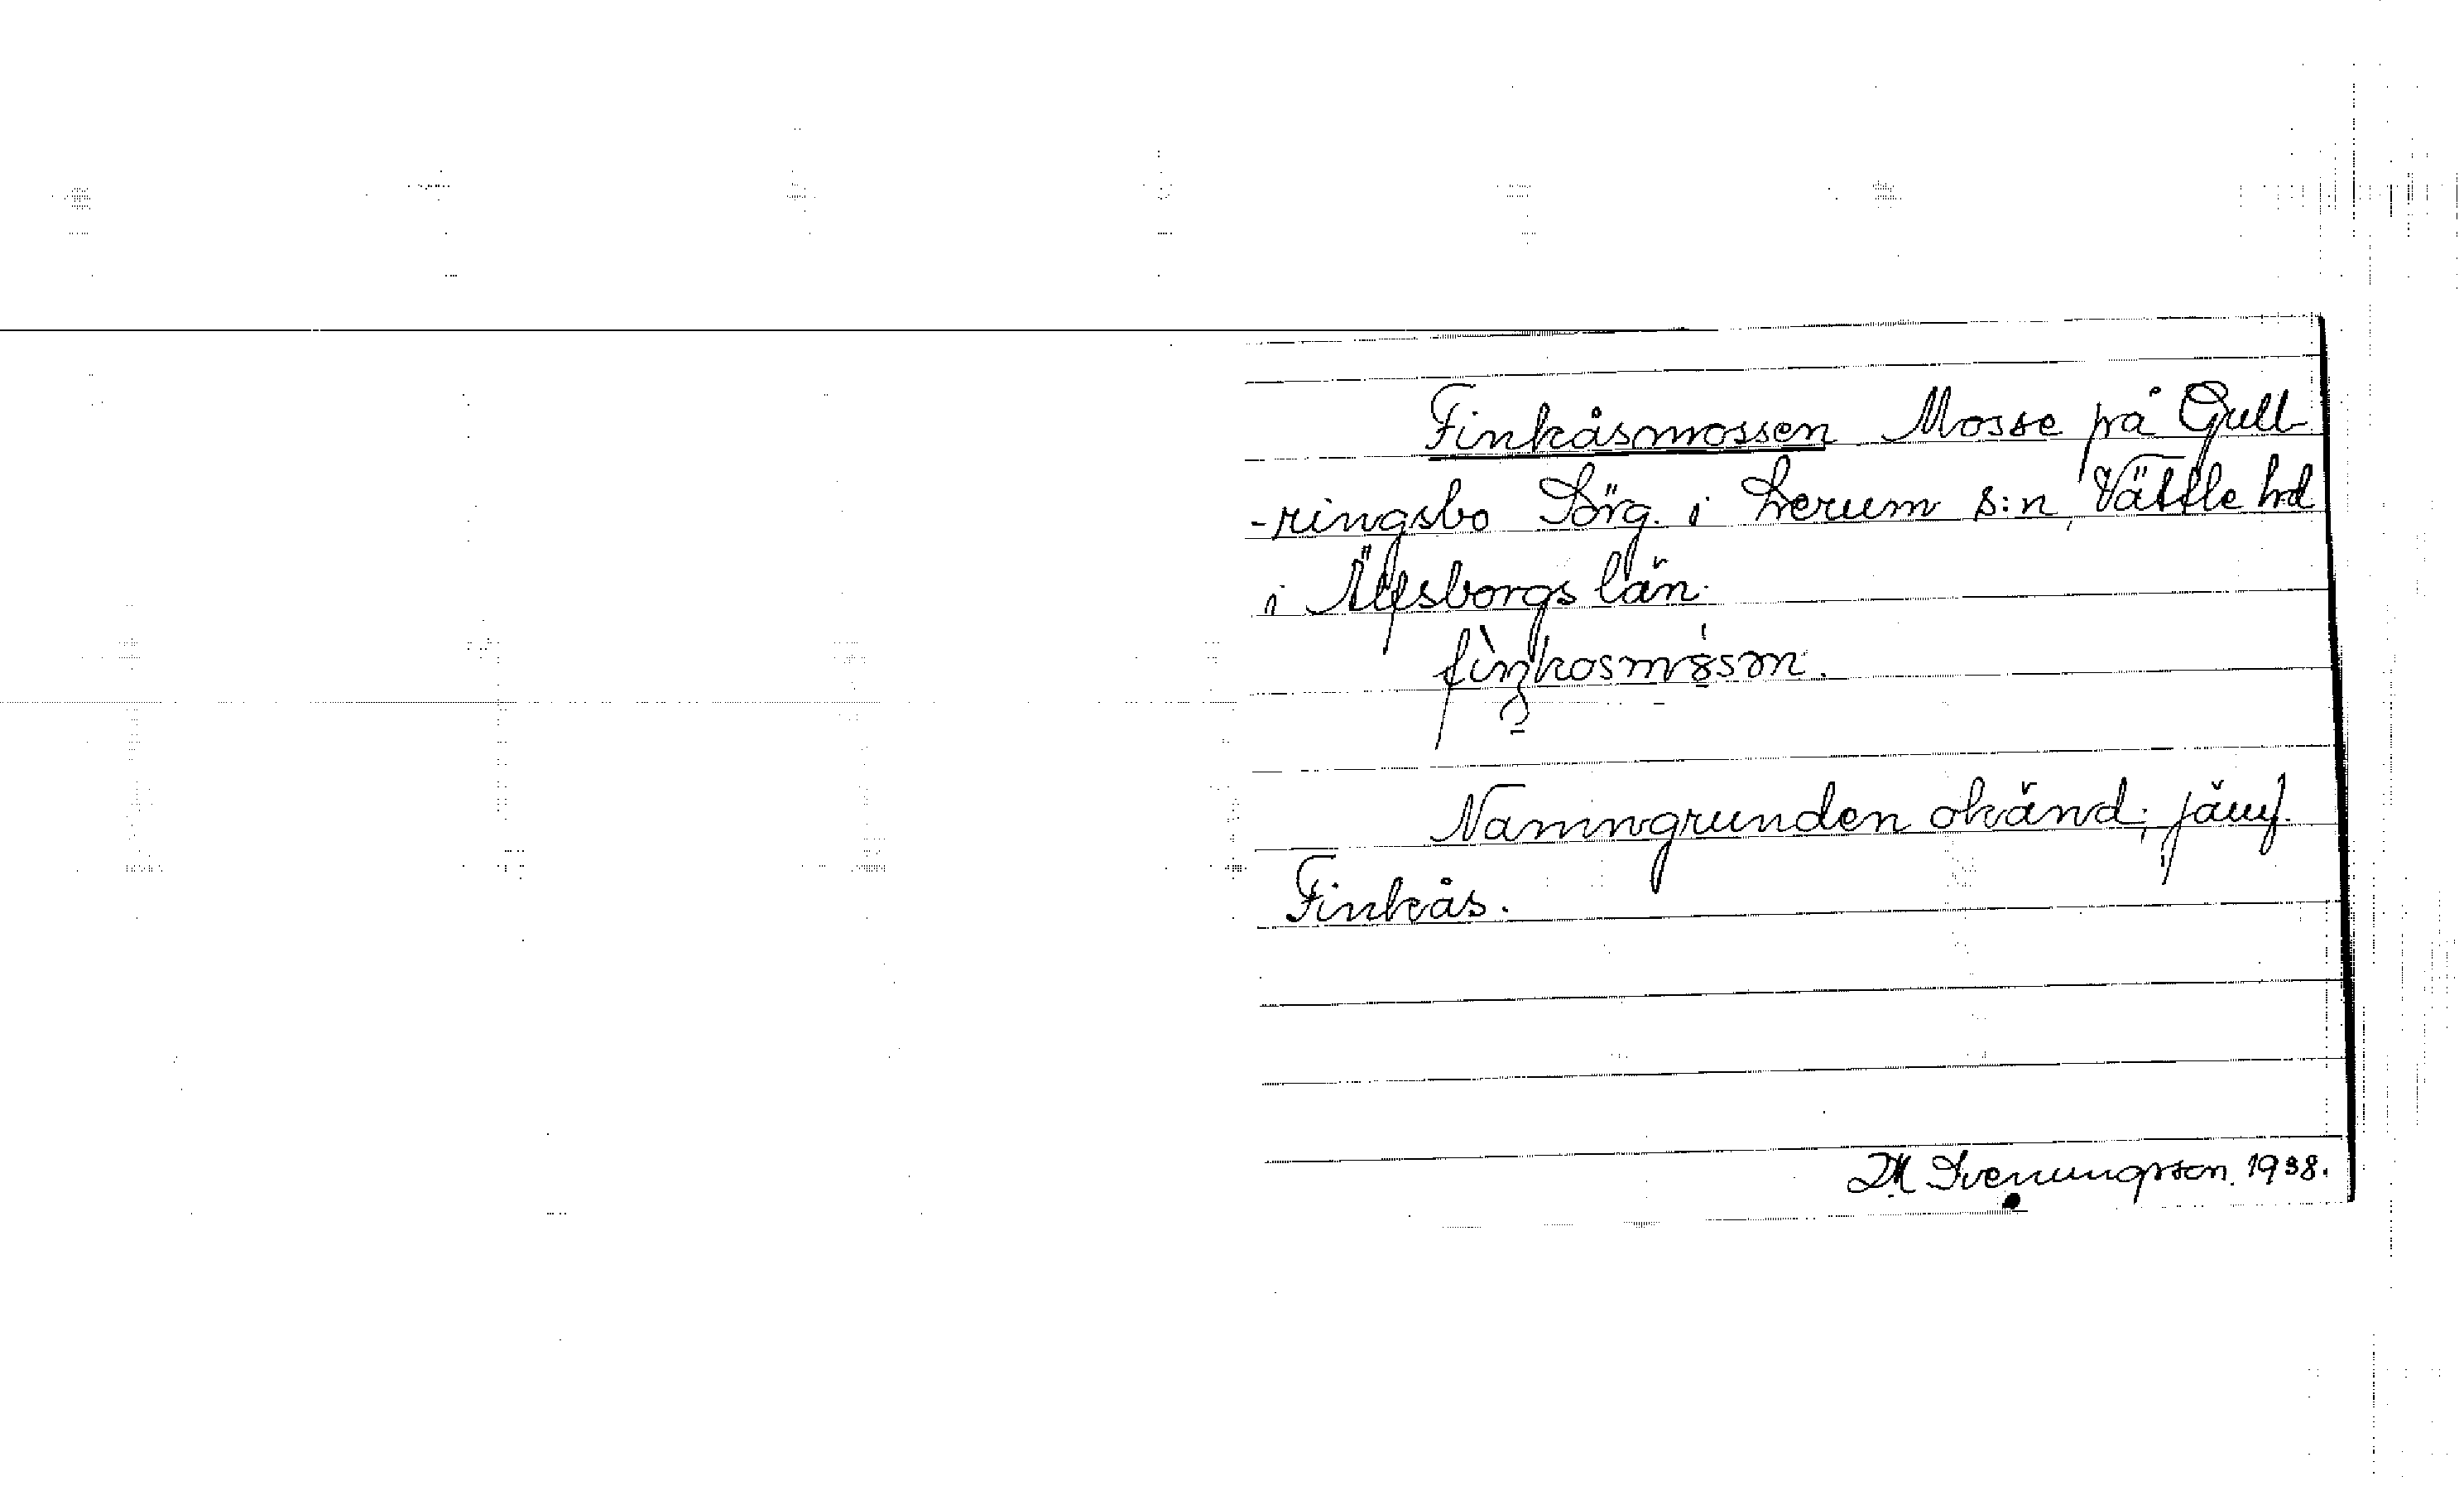 Finkåsmossen Mosse på Gull-
-ringsbo Sörg. i Lerum s:n, Vättle hd
i Älfsborgs län.
Namngrunden okänd; jämf.
Finkås.
DM Svenungsson. 1938.